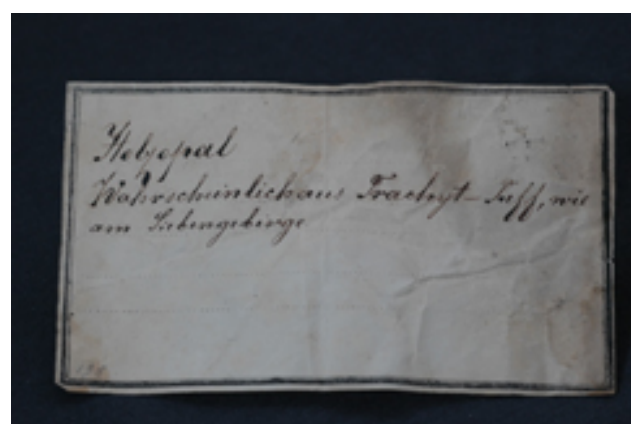 Holzopal
Wahrscheinlich aus Trachyt-Tuff, wie
am Siebengebirge